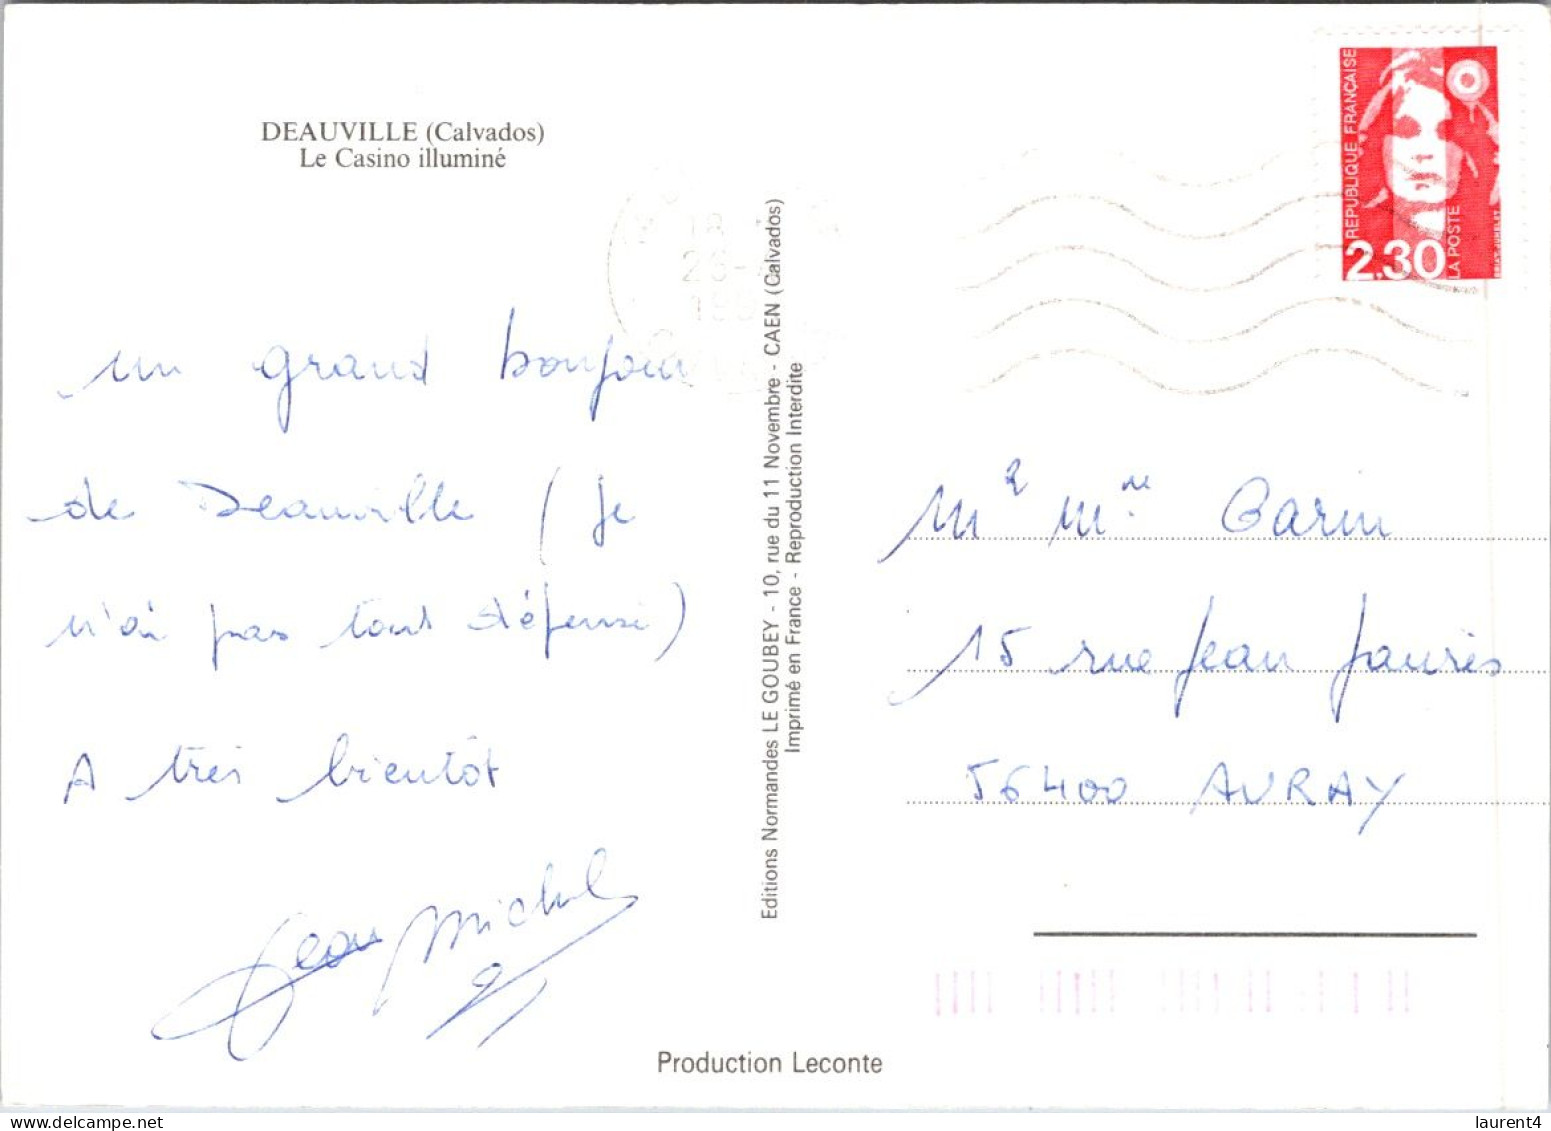 DEAUVILLE (Calvados)
Le Casino illuminé
un grand bonjour
de Deauville (je
n'ai pas tout dépensé)
A très bientôt
Jean Michel
Editions Normandes LE GOUBEY - 10, rue du 11 Novembre - CAEN (Calvados)
Imprimé en France - Reproduction Interdite
Production Leconte
REPUBLIQUE FRANÇAISE
2,30
LA POSTE
18
26-
M & Mme Garin
15 rue Jean Jaurès
56400 AURAY
laurent4